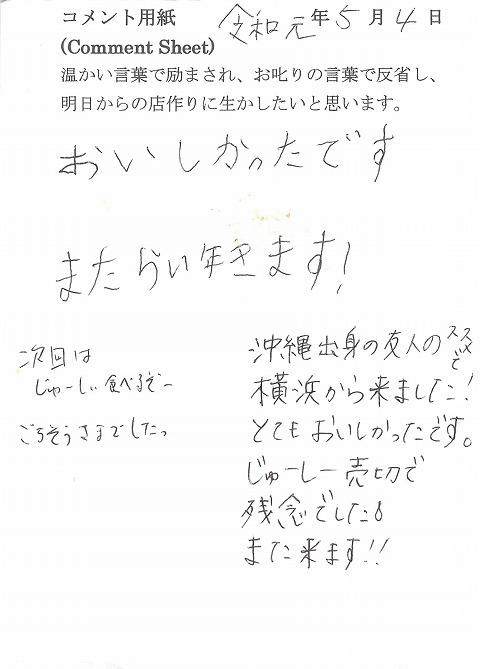 コメント用紙 令和元年5月4日
(Comment Sheet)
温かい言葉で励まされ、お叱りの言葉で反省し、
明日からの店作りに生かしたいと思います。
おいしかったです
またらい年きます!
次回は
じゅーしぃ食べるぞー
ごちそうさまでしたっ
沖縄出身の友人のススメで
横浜から来ました!
とてもおいしかったです。
じゅーしー売切で
残念でした
また来ます!!